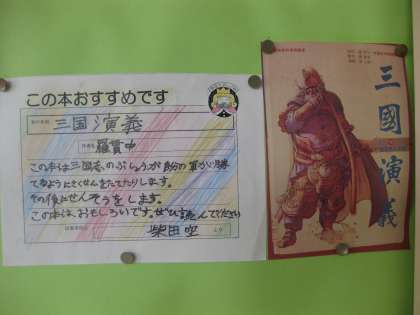 この本おすすめです
三国演義
羅貫中
この本は三国志のぶしょうが自分の軍がか勝
てるようにさくせんをたてたりします。
その後にせんそうをします。
この本は、おもしろいです。ぜひ読んでください
柴田空 より
三國演義